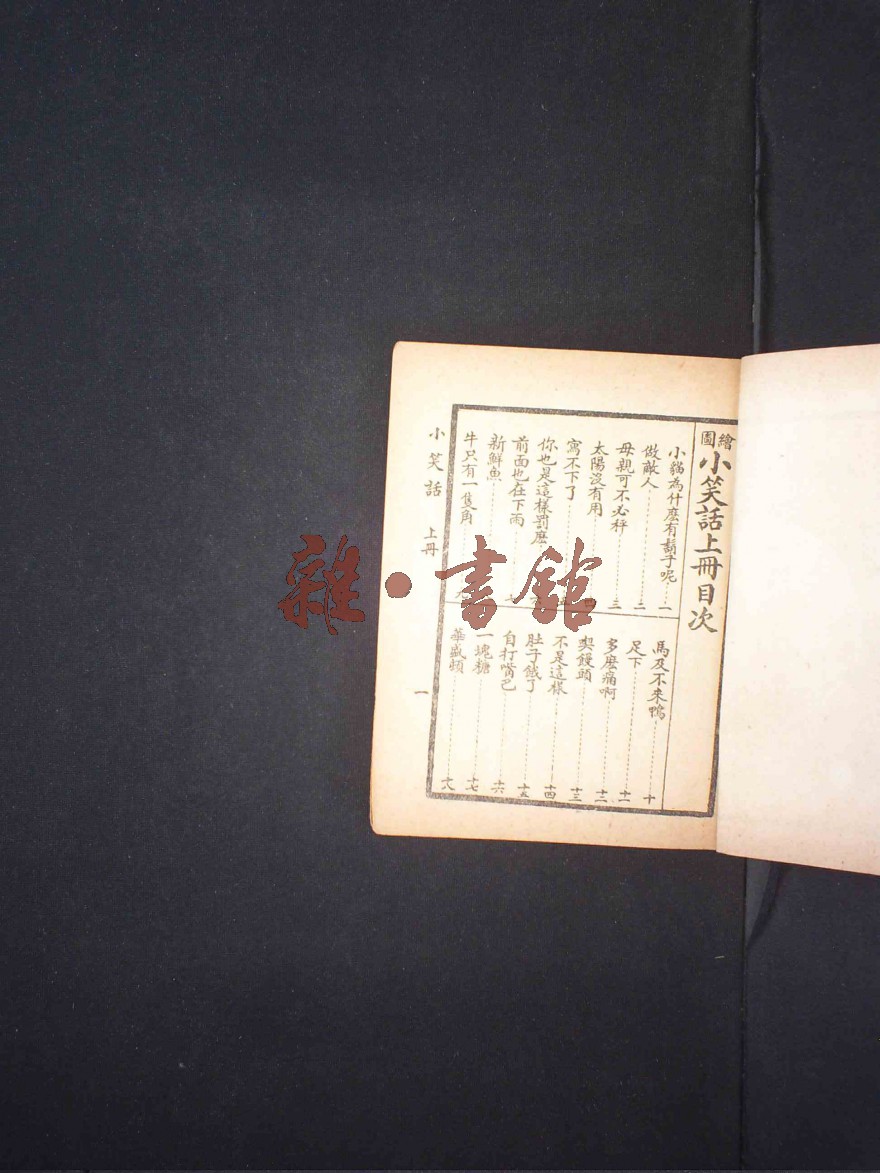 繪圖小笑話上冊目次
小貓為什麼有鬍子呢……一
做敵人……二
母親可不必秤……三
太陽沒有用
寫不下了
你也是這樣罰麼
前面也在下雨
新鮮魚
牛只有一隻角
馬及不來鴨……十
足下……十一
多麽痛啊……十二
喫饅頭……十三
不是這樣……十四
肚子餓了……十五
自打嘴巴……十六
一塊糖……十七
華盛頓……十八
小笑話 上冊
一
雜·書館